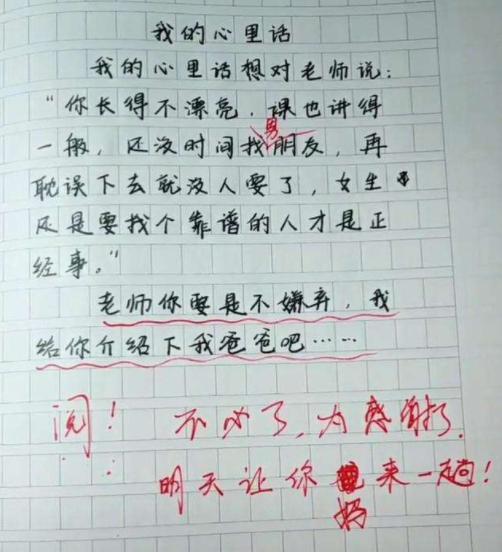 我的心里话
我的心里话想对老师说:
“你长得不漂亮,课也讲得
一般,还没时间找男朋友,再
耽误下去就没人要了,女生
还是要找个靠谱的人才是正
经事。”
老师你要是不嫌弃,我
给你介绍下我爸爸吧……
阅! 不必了,
明天让你妈来一趟!